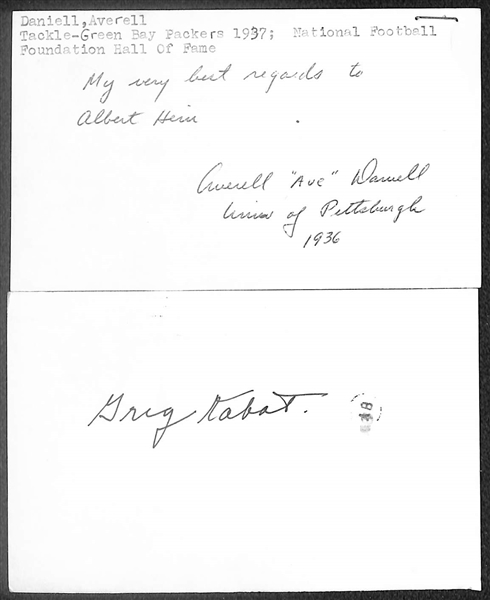 Daniell,Averell
Tackle-Green Bay Packers 1937; National Football
Foundation Hall Of Fame
My very best regards to
Albert Hein
Averell "Ave" Daniell
Univ of Pittsburgh
1936
Greg Kabat.